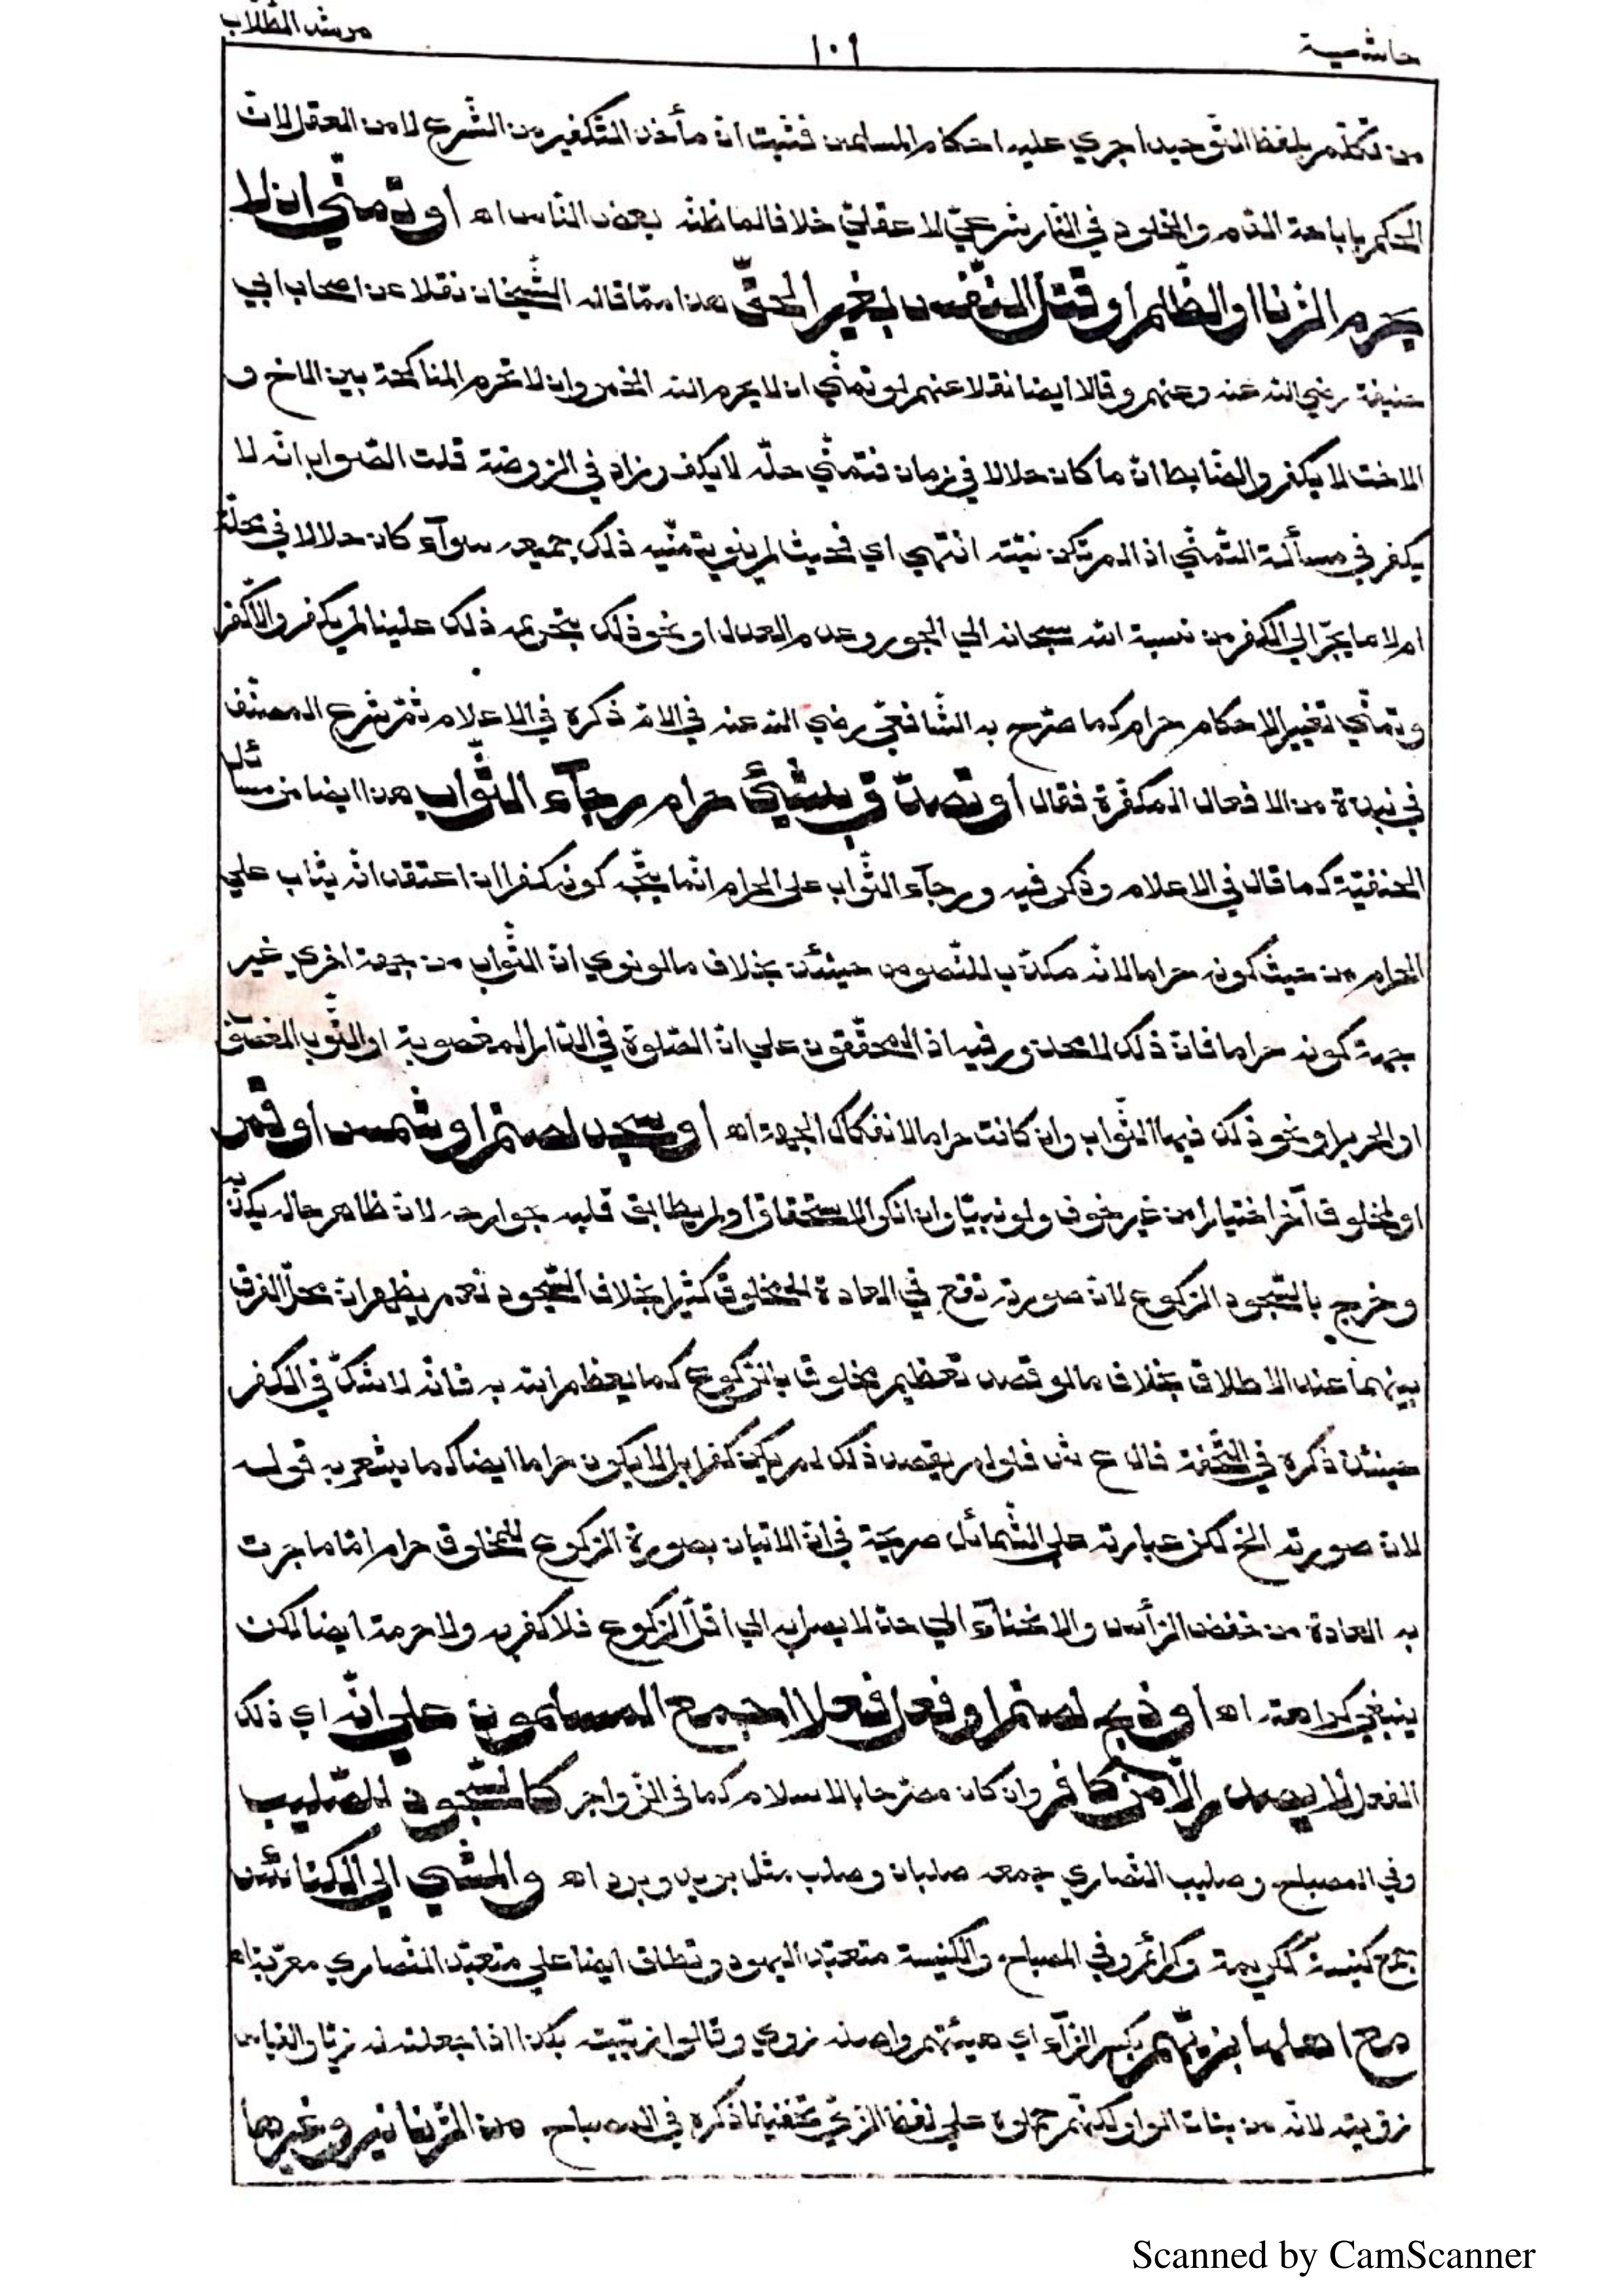 حاشية ١٠١ مرشد الطلاب
من تكلم بلفظ التوحيد اجري عليه احكام المسلمين فثبت ان مأخذ التكفير من الشرع لا من العقل لان
الحكم باباحة الدم والخلود في النار شرعي لا عقلي خلافا لما ظنه بعض الناس اه او تمني ان لا
يحرم الزنا او الظلم او قتل النفس بغير الحق هذا مما قاله الشيخان نقلا عن اصحاب ابي
حنيفة رضي الله عنه وعنهم وقالا ايضا نقلا عنهم لو تمني ان لا يحرم الله الخمر وان لا تحرم المناكحة بين الاخ و
الاخت لا يكفر والضابط ان ما كان حلالا في زمان فتمني حله لا يكفر وزاد في الروضة قلت الصواب انه لا
يكفر في مسألة التمني اذا لم تكن نيته انتهي اي فحيث لم ينو بتمنيه ذلك جميعه سوآء كان حلالا في محله
ام لا ما يجر الي الكفر من نسبة الله سبحانه الي الجور وعدم العدل او نحو ذلك بتحريمه ذلك علينا لم يكفر والا كفر
وتمني تغيير الاحكام حرام كما صرح به الشافعي رضي الله عنه في الام ذكره في الاعلام ثم شرع المصنف
في نبذة من الافعال المكفرة فقال او تصدق بشيئ حرام رجآء الثواب هذا ايضا من مسائل
الحنفية كما قال في الاعلام وذكر فيه ورجآء الثواب على الحرام انما يتجه كونه كفرا ان اعتقد انه يثاب علي
الحرام من حيث كونه حراما لانه مكذب للنصوص حينئذ بخلاف ما لو نوي ان الثواب من جهة اخري غير
جهة كونه حراما فان ذلك لا محذور فيه اذ المحققون علي ان الصلوة في الدار المغصوبة او الثوب المغصوب
او الحرير او نحو ذلك فيها الثواب وان كانت حراما لانفكاك الجهة اه او سجد لصنم او شمس او قمر
او لمخلوق آخر اختيارا من غير خوف ولو نبيا وان انكر الاستحقاق او لم يطابق قلبه جوارحه لان ظاهر حاله يكذبه
وخرج بالسجود الركوع لان صورته تقع في العادة للمخلوق كثيرا بخلاف السجود نعم يظهر ان محل الفرق
بينهما عند الاطلاق بخلاف ما لو قصد تعظيم مخلوق بالركوع كما يعظم الله به فانه لا شك في الكفر
حينئذ ذكره في التحفة قال ع ش فلو لم يقصد ذلك لم يكن كفرا بل لا يكون حراما ايضا كما يشعر به قوله
لان صورته الخ لكن عبارته علي الشمائل صريحة في ان الاتيان بصورة الركوع للمخلوق حرام اما ما جرت
به العادة من خفض الرأس والانحنآء الي حد لا يصل به الي اقل الركوع فلا كفر به ولا حرمة ايضا لكن
ينبغي كراهته اه او ذبح لصنم او فعل فعلا اجمع المسلمون علي انه اي ذلك
الفعل لا يصدر الا من كافر وان كان مصرحا بالاسلام كما في الزواجر كالسجود للصليب
وفي المصباح وصليب النصاري جمعه صلبان وصلب مثل بريد وبرد اه والمشي الي الكنائس
جمع كنيسة ككريمة وكرائم وفي المصباح والكنيسة متعبد اليهود وتطلق ايضا علي متعبد النصاري معربة اه
مع اهلها بزيهم بكسر الزآء اي هيئتهم واصله زوي وقالوا زييته بكذا اذا جعلته له زيا والقياس
زويته لانه من بنات الواو لكنهم حملوه علي لفظ الزي تخفيفا ذكره في المصباح من الزنانير وغيرها
Scanned by CamScanner